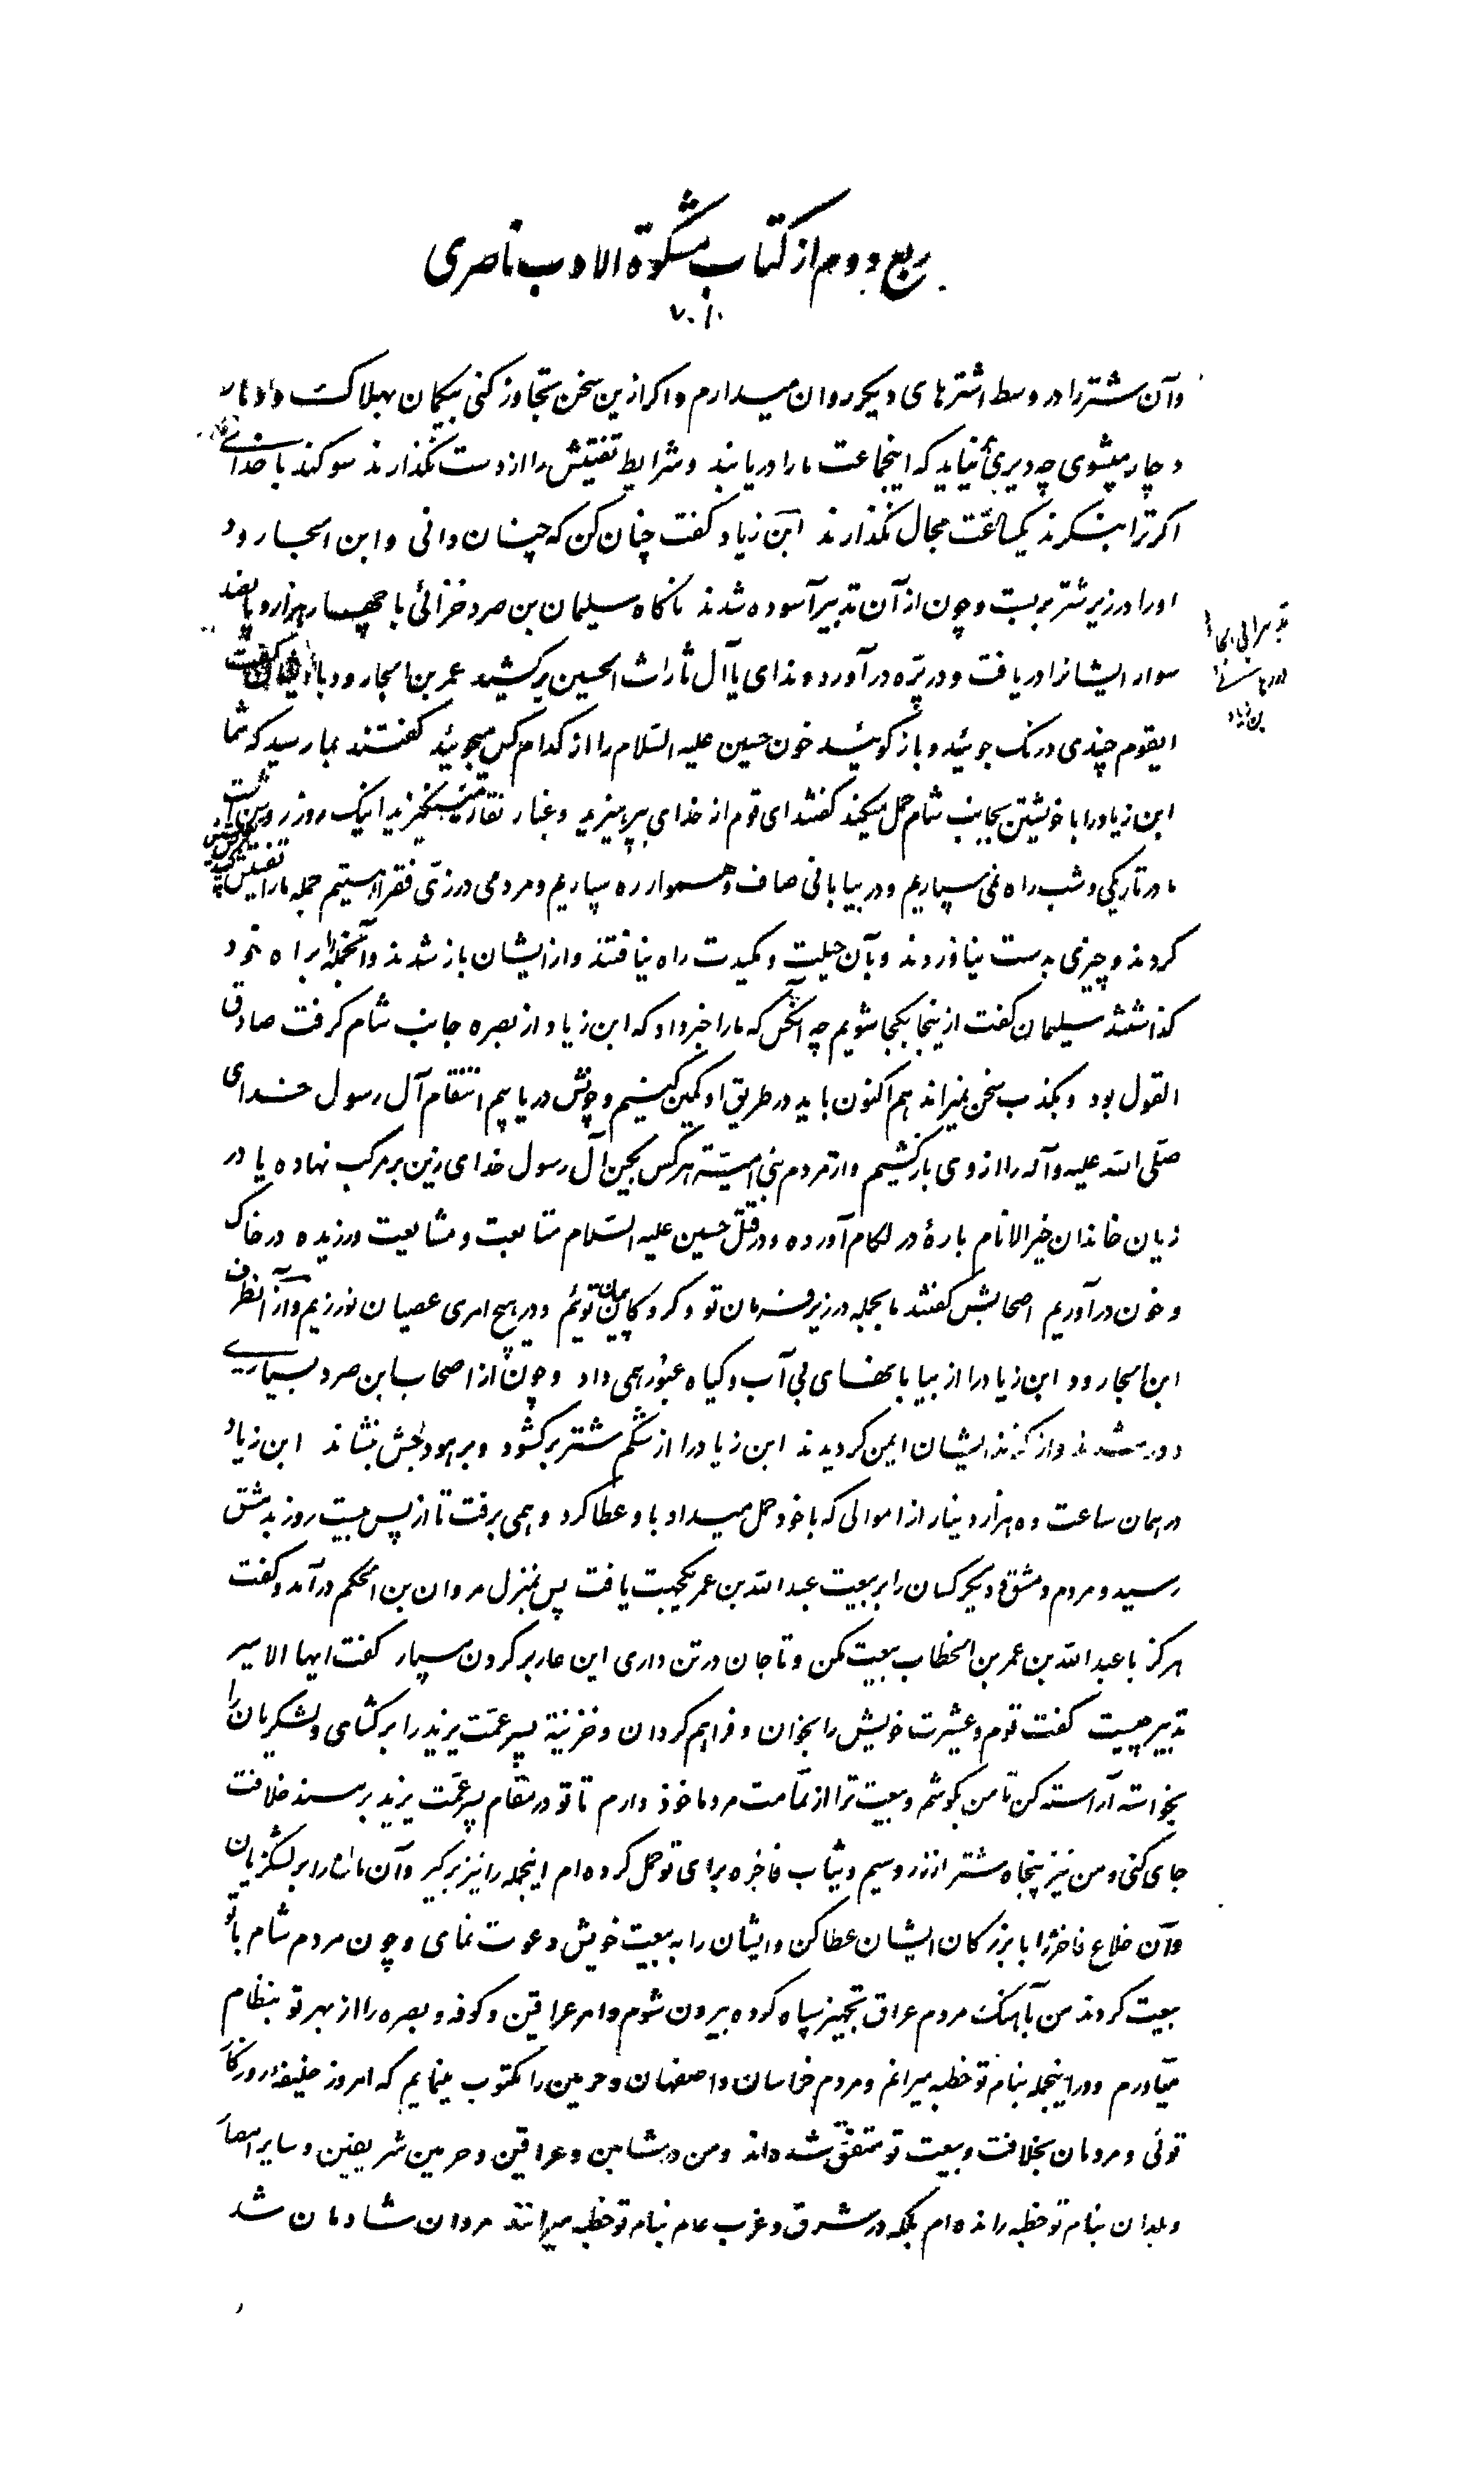 ربع دوم از کتاب مشکوة الادب ناصری
۷۰۱۰
وآن شتر را در وسط اشترهای دیکر روان میدارم واکر ازین سخن تجاوز کنی بیکمان بهلاکت ودمار
دچار میشوی چه دیری نیاید که اینجماعت ما را دریابند وشرایط تفتیش را از دست نکذارند سوکند با خدای
اکر ترا بنکرند یکساعت مجال نکذارند ابن زیاد کفت چنان کن که چنان دانی وابن الجارود
او را در زیر شتر بربست وچون از آن تدبیر آسوده شدند ناکاه سلیمان بن صرد خزائی با چهار هزار وپانصد
سوار ایشانرا دریافت ودر پره درآورد وندای یاآل ثارات الحسین برکشید عمر بن الجارود با ایشان کفت
ایقوم چندی درنک جوئید وباز کوئید خون حسین علیه السلام را از کدام کس میجوئید کفتند بما رسید که شما
ابن زیاد را با خویشتن بجانب شام حمل میکنید کفتند ای قوم از خدای بپرهیزید وغبار نقار مینکیزید اینک روز روشن است
ما در تاریکی وشب راه نمی سپاریم ودر بیابانی صاف وهموار ره سپاریم ومردمی در زی فقرا هستیم جمله ما را تفتیش کنید
کردند وچیزی بدست نیاوردند وبآن حیلت ومکیدت راه نیافتند واز ایشان باز شدند وآنجمله را براه خود
کذاشتند سلیمان کفت از اینجا بکجا شویم چه آنکس که ما را خبر داد که ابن زیاد از بصره جانب شام کرفت صادق
القول بود وبکذب سخن نمیراند هم اکنون باید در طریق او کمین کنیم وچونش دریابیم انتقام آل رسول خدای
صلی الله علیه وآله را از وی بازکشیم واز مردم بنی امیه هرکس بکین آل رسول خدای زین بر مرکب نهاده یا در
زیان خاندان خیر الانام باره در لکام آورده ودر قتل حسین علیه السلام متابعت ومشایعت ورزیده در خاک
وخون درآوریم اصحابش کفتند ما بجمله در زیر فرمان تو وکرو پیمان توئیم ودر هیچ امری عصیان نورزیم واز آنطرف
ابن الجارود ابن زیاد را از بیابانهای بی آب وکیاه عبور همی داد وچون از اصحاب ابن صرد بسیاری
دور شدند واز کزند ایشان ایمن کردیدند ابن زیاد را از شکم شتر برکشود وبر هودجش بنشاند ابن زیاد
در همان ساعت ده هزار دینار از اموالی که با خود حمل میداد باو عطا کرد وهمی برفت تا از پس بیست روز بدمشق
رسید ومردم دمشق ودیکر کسان را بر بیعت عبد الله بن عمر یکجهت یافت پس بمنزل مروان بن الحکم درآمد وکفت
هرکز با عبد الله بن عمر بن الخطاب بیعت مکن وتا جان در تن داری این عار بر کردن مسپار کفت ایها الامیر
تدبیر چیست کفت قوم وعشیرت خویش را بخوان وفراهم کردان وخزینهٔ پسر عمت یزید را برکشای ولشکریان را
بخواسته آراسته کن تا من بکوشم وبیعت ترا از تمامت مردم ماخوذ دارم تا تو در مقام پسر عمت یزید بر مسند خلافت
جای کنی ومن نیز پنجاه شتر از زر وسیم وثیاب فاخره برای تو حمل کرده ام اینجمله را نیز برکیر وآن مال را بر لشکریان
وآن خلاع فاخره را با بزرکان ایشان عطا کن وایشان را به بیعت خویش دعوت نمای وچون مردم شام با تو
بیعت کردند من بآهنک مردم عراق تجهیز سپاه کرده بیرون شوم وامر عراقین وکوفه وبصره را از بهر تو بنظام
میآورم ودر اینجمله بنام تو خطبه میرانم ومردم خراسان واصفهان وحرمین را مکتوب مینمایم که امروز خلیفهٔ روزکار
توئی ومردمان بخلافت وبیعت تو متفق شده اند ومن در شامین وعراقین وحرمین شریفین وسایر امصار
وبلدان بنام تو خطبه رانده ام بلکه در شرق وغرب عالم بنام تو خطبه میرانند مروان شادمان شد